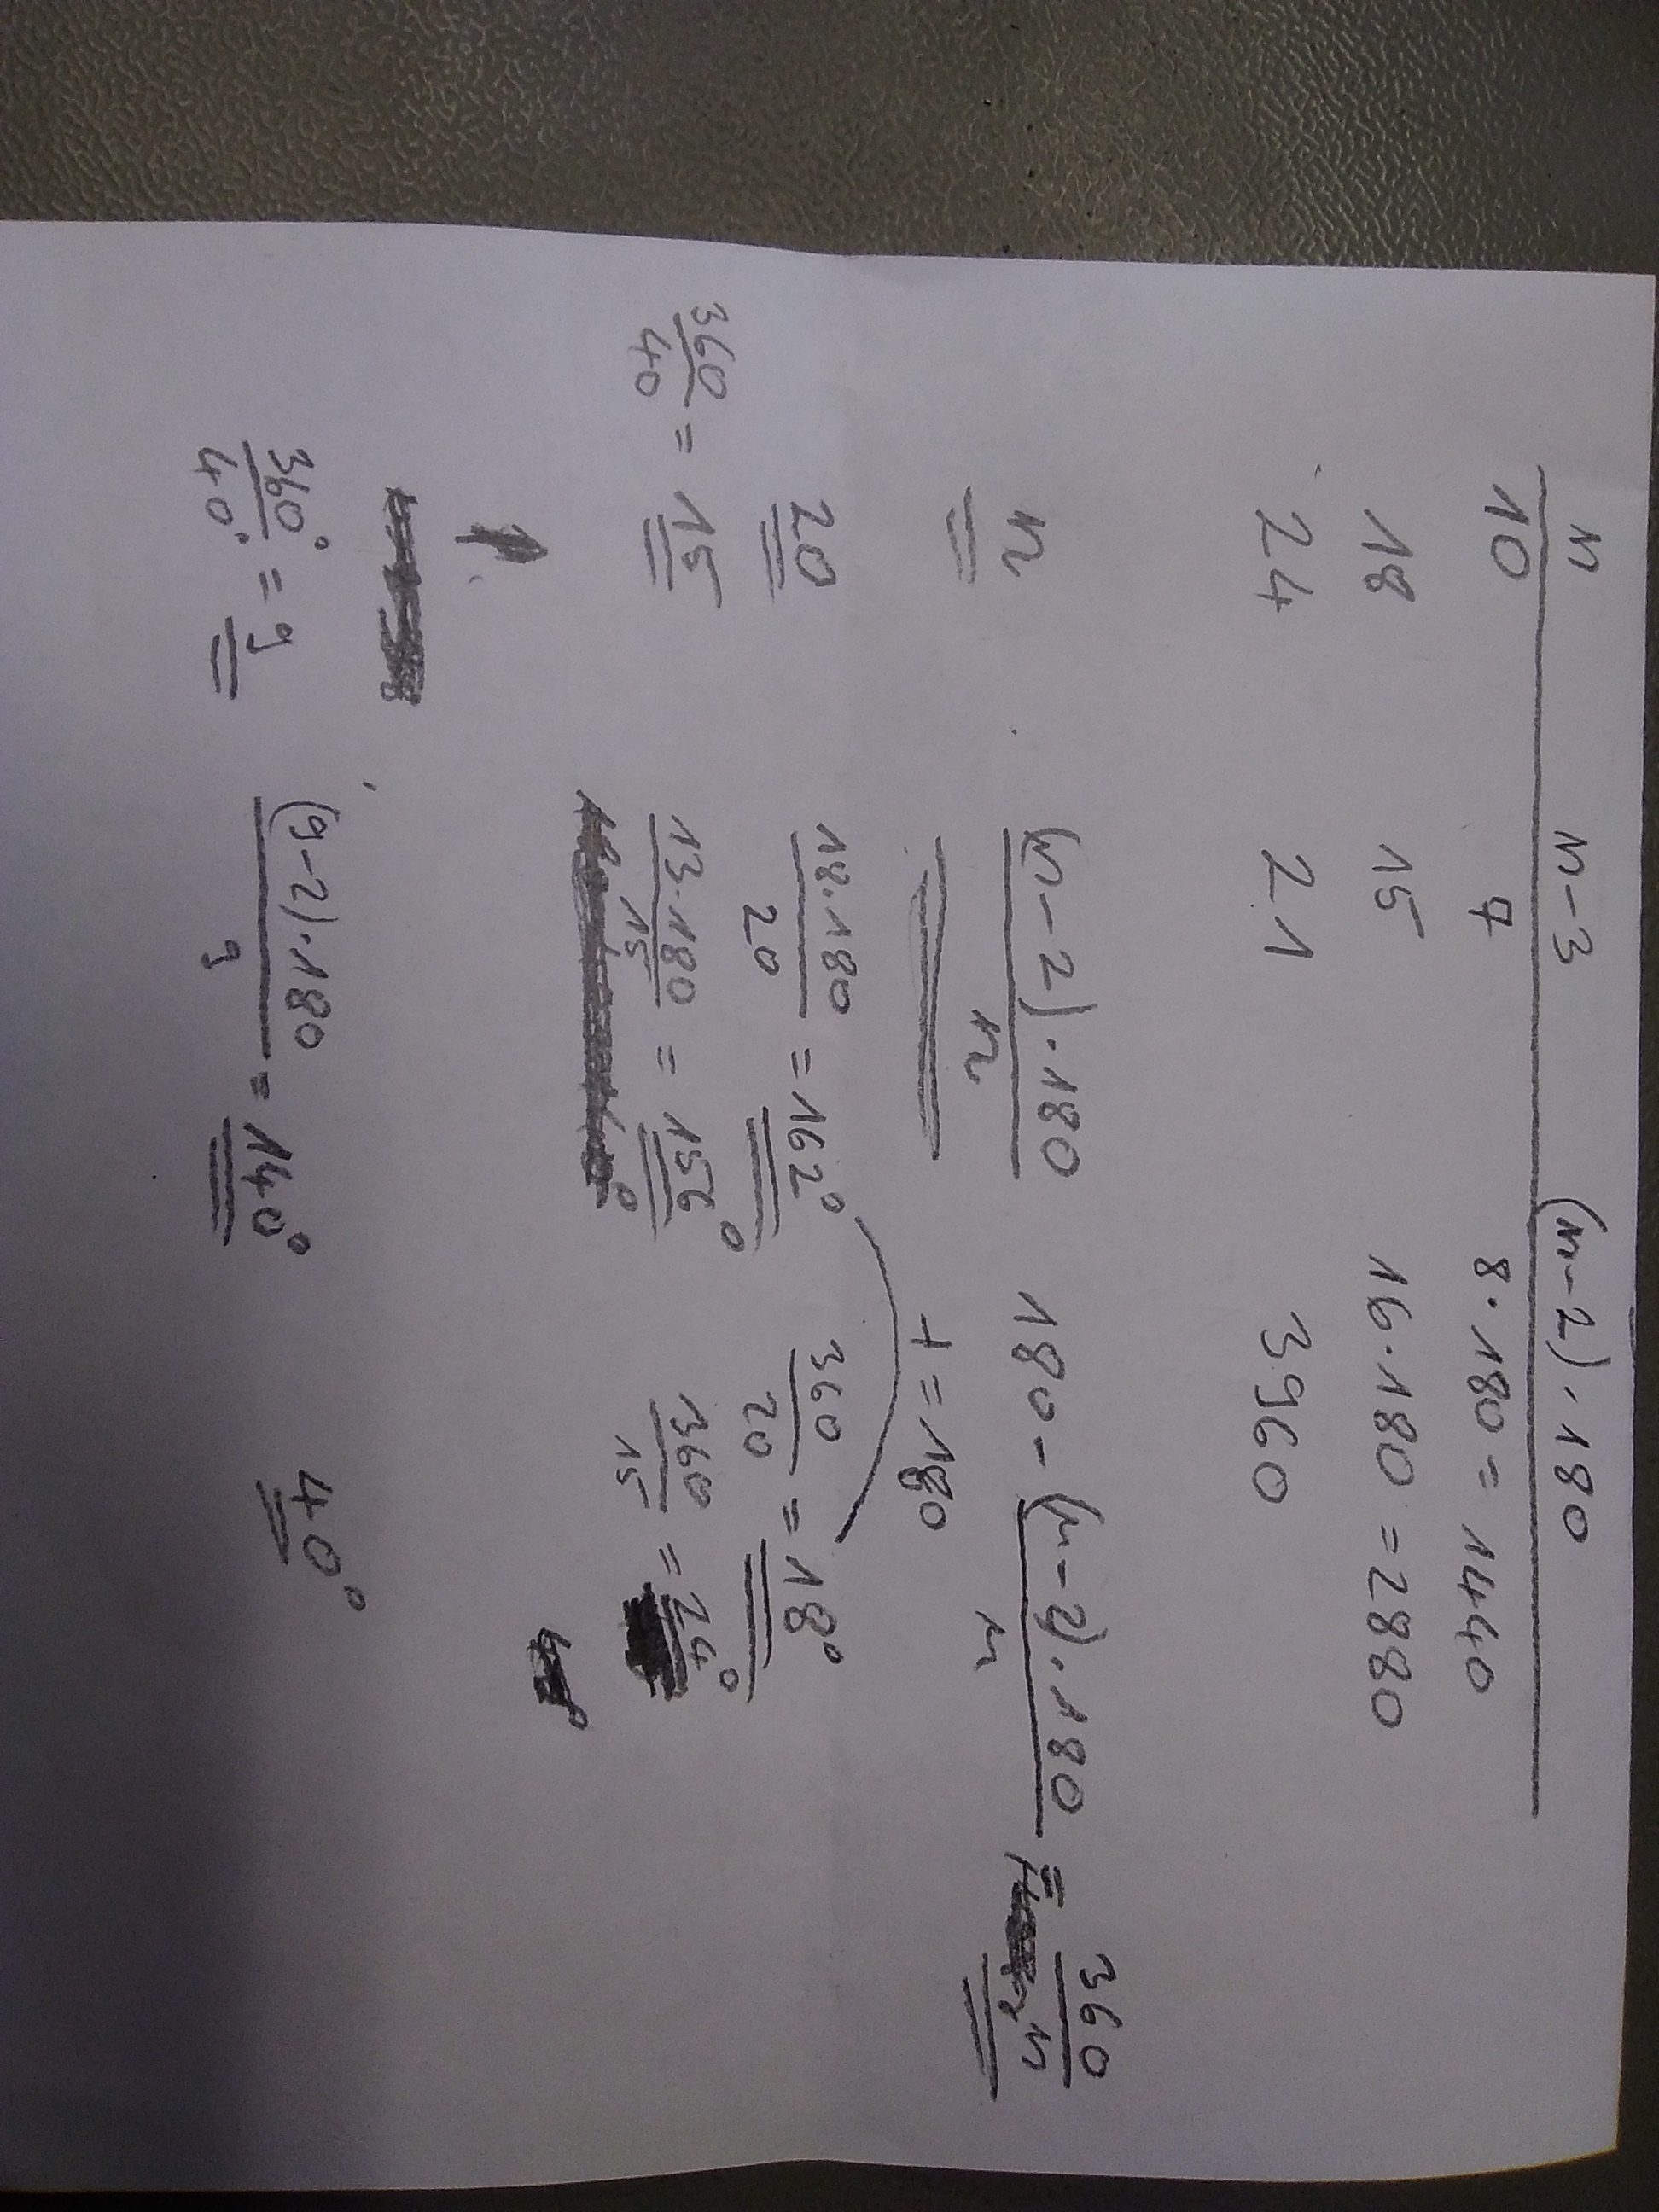 n n-3 (n-2).180
10 7 8.180 = 1440
18 15 16.180 = 2880
24 21 3960
n (n-2).180 / n 180 - (n-2).180 / n = 360 / n
+ = 180
20 18.180 / 20 = 162° 360 / 20 = 18°
360 / 40 = 15 13.180 / 15 = 156° 360 / 15 = 24°
360° / 40° = 9 (9-2).180 / 9 = 140° 40°